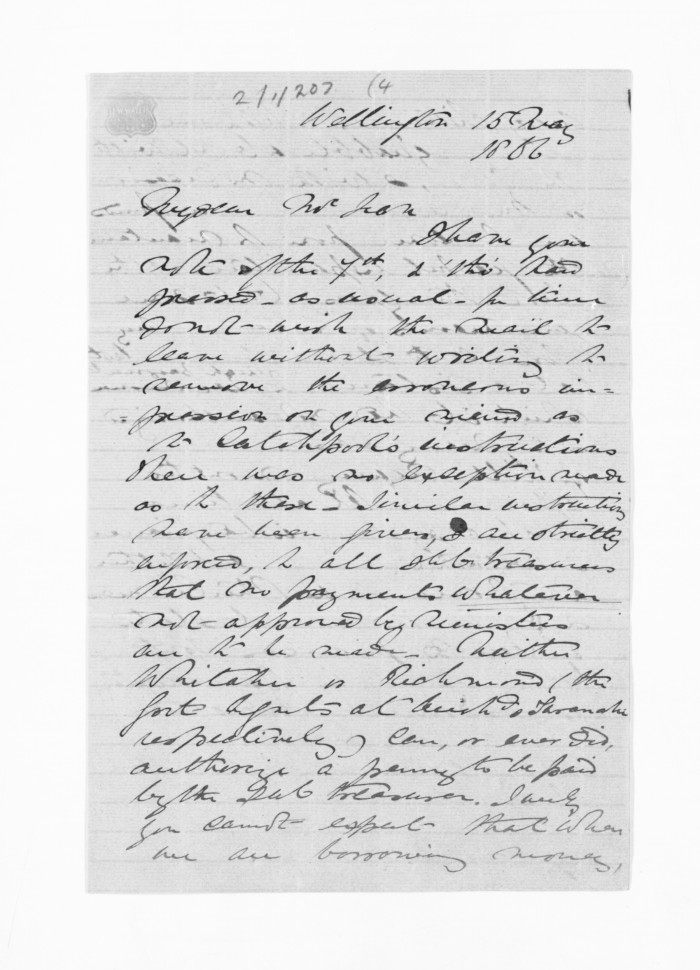 2/1/207 (4
Wellington 15 May
1866
My dear Mr McLean
I have your
note of the 7th, & tho' hard
pressed - as usual - for time
do not wish the mail to
leave without writing to
remove the erroneous im=
=pression on your mind as
to Catchpool's instructions
there was no exception made
as to these - Similar instructions
have been given, & are strictly
enforced, to all Sub treasurers
that no payments whatever
not approved by Ministers
are to be made - Neither
Whitaker or Richmond (the
Govt Agents at Auckd & Taranaki
respectively) can, or ever did,
authorize a penny to be paid
by the Sub treasurer. Surely
you cannot expect that when
we are borrowing money,